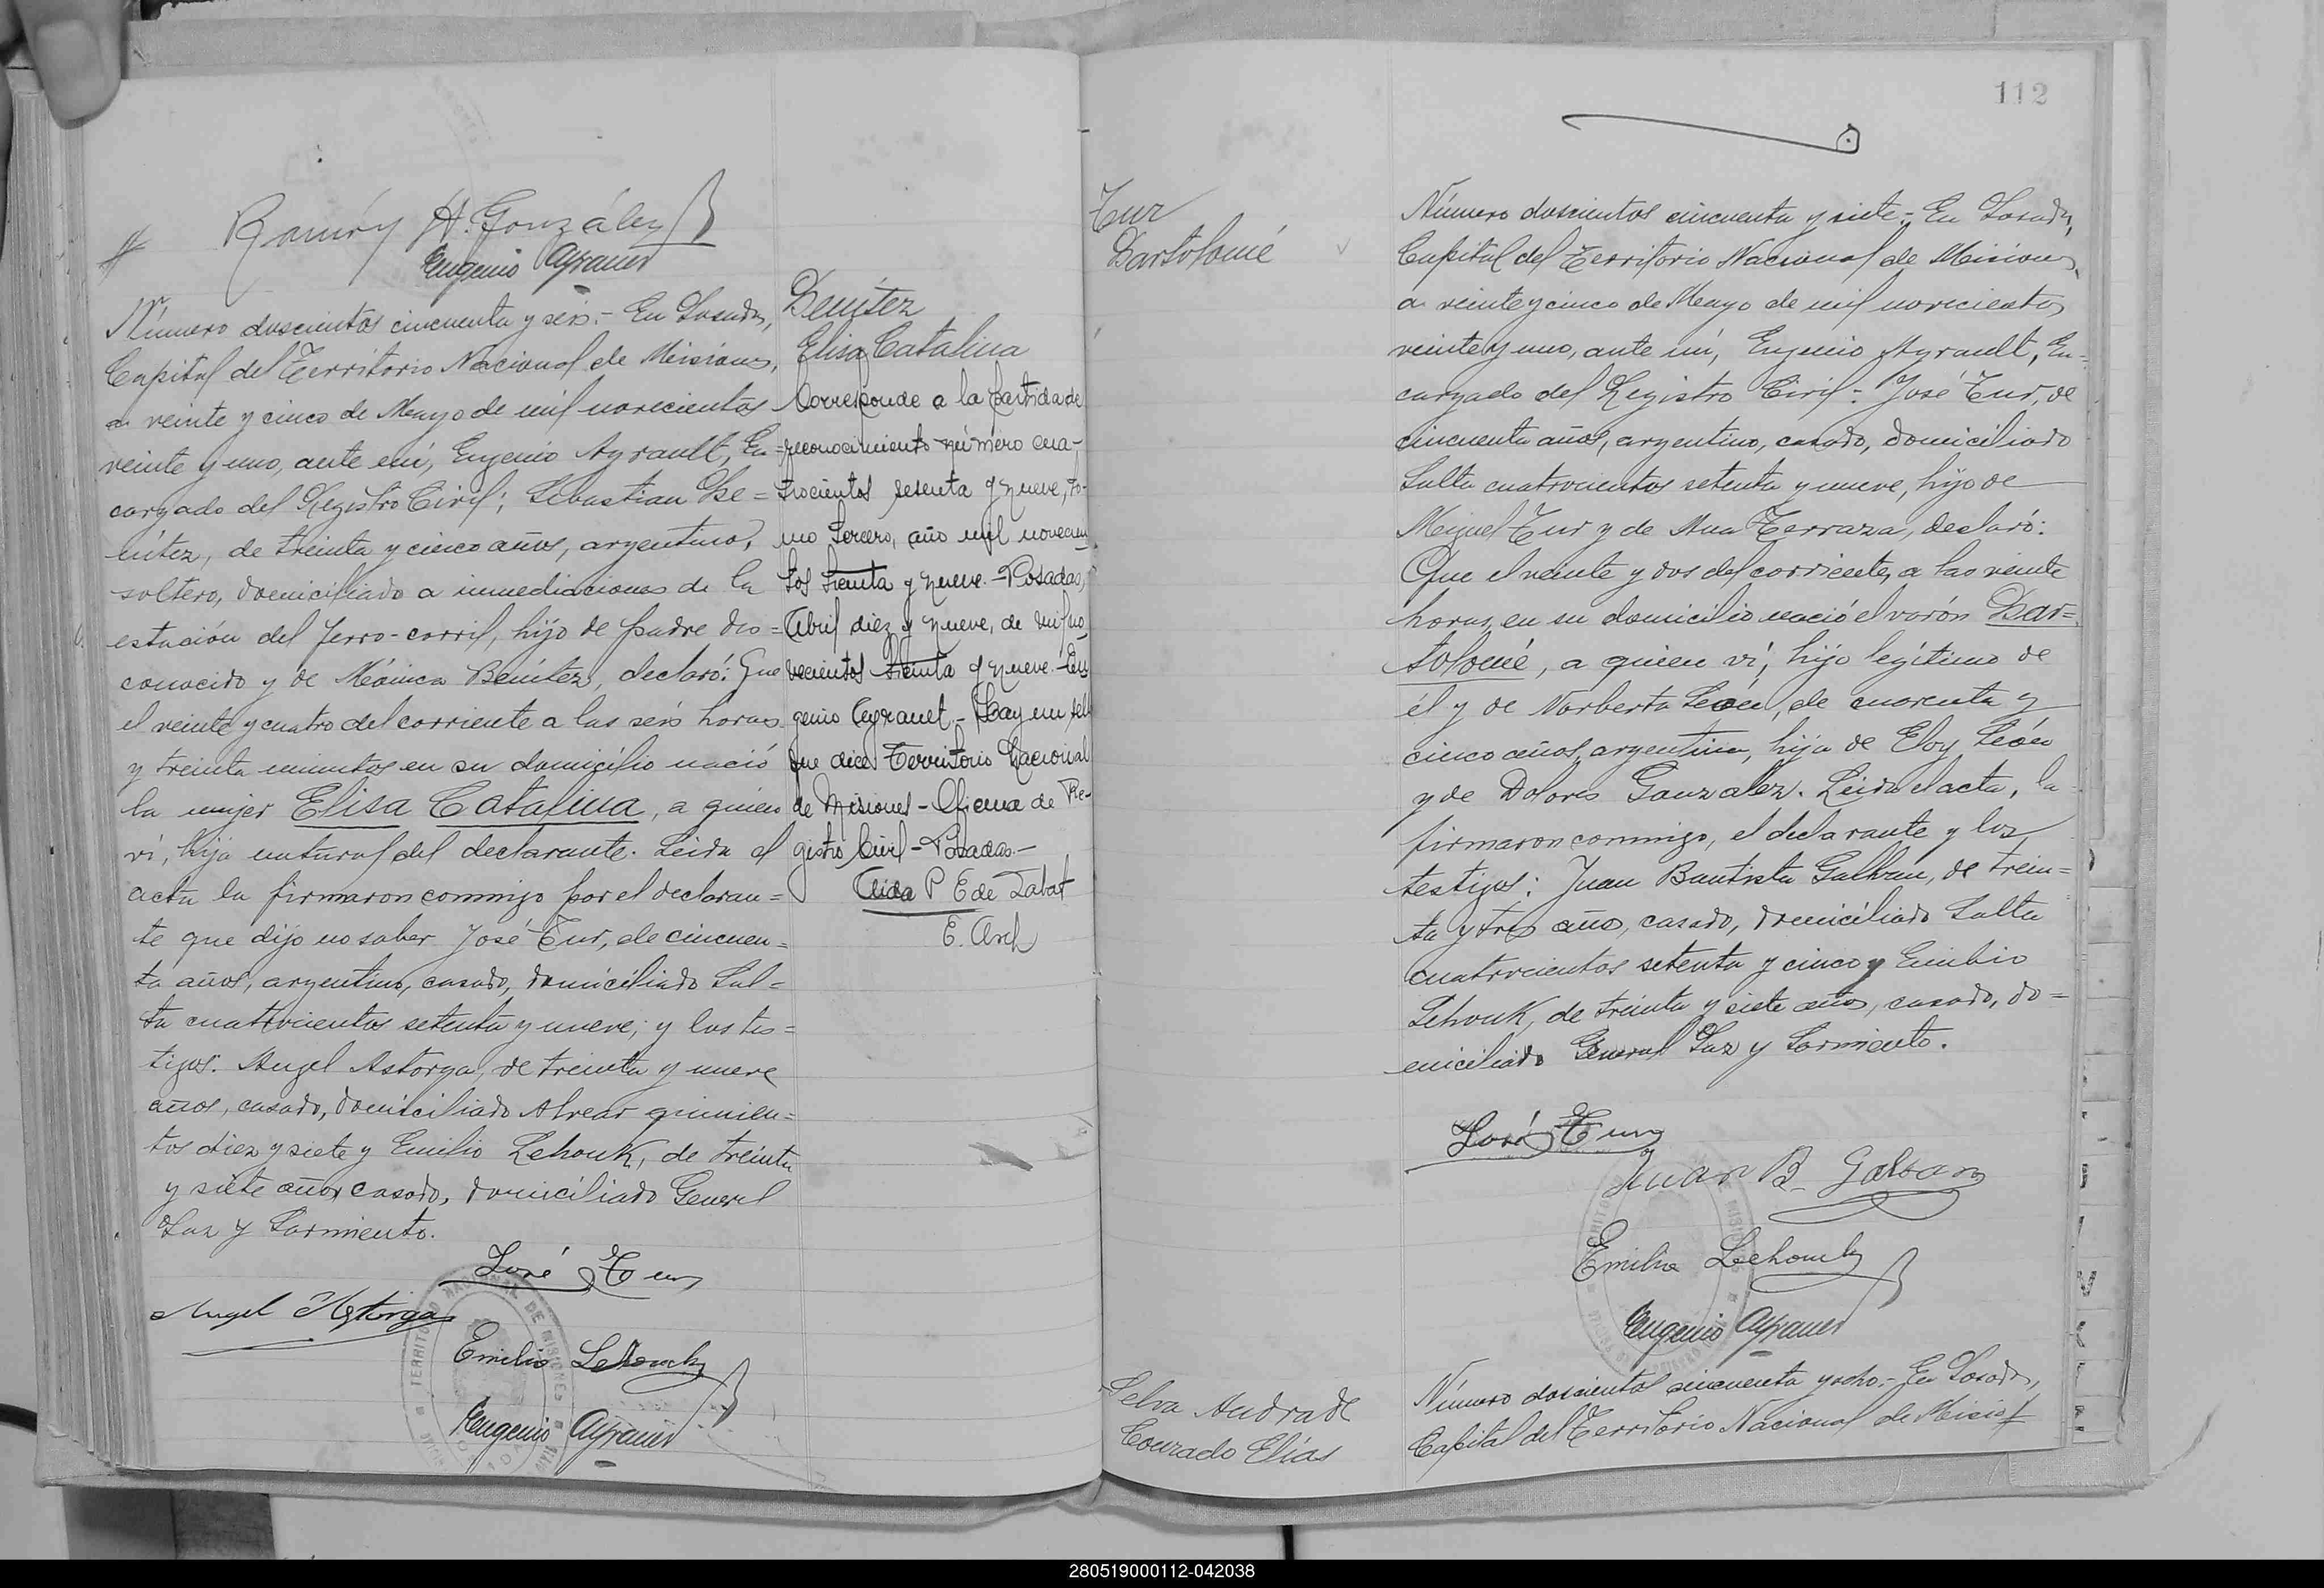 Ramón A. González
Eugenio Ayrault
Número doscientos cincuenta y seis.- En Posadas,
Capital del Territorio Nacional de Misiones,
a veinte y cinco de Mayo de mil novecientos
veinte y uno, ante mí, Eugenio Ayrault, En=
cargado del Registro Civil; Sebastian Be=
nítez, de treinta y cinco años, argentino,
soltero, domiciliado a inmediaciones de la
estación del ferro-carril, hijo de padre des=
conocido y de Mónica Benítez, declaró: Que
el veinte y cuatro del corriente a las seis horas
y treinta minutos en su domicilio nació
la mujer Elisa Catalina, a quien
ví, hija natural del declarante. Leida el
acta la firmaron conmigo por el declaran=
te que dijo no saber José Tur, de cincuen=
ta años, argentino, casado, domiciliado Sal=
ta cuatrocientos setenta y nueve; y los tes=
tigos: Angel Astorga, de treinta y nueve
años, casado, domiciliado Alvear quinien=
tos diez y siete y Emilio Lehouk, de treinta
y siete años casado, domiciliado General
Paz y Sarmiento.
José Tur
Angel Astorga
Emilio Lehouck
Eugenio Ayrault
TERRITORIO NACIONAL DE MISIONES
Benítez
Elisa Catalina
Corresponde a la partida de
reconocimiento número cua-
trocientos sesenta y nueve, to-
mo tercero, año mil novecien
tos treinta y nueve.- Posadas,
Abril diez y nueve, de mil no
vecientos treinta y nueve.- Eu
genio Ayrault.- Hay un sello
que dice Territorio Nacional
de Misiones - Oficina de Re-
gistro Civil - Posadas.-
Aida P E de Labat
E. Arch
112
Tur
Bartolomé
Número doscientos cincuenta y siete.- En Posadas,
Capital del Territorio Nacional de Misiones,
a veinte y cinco de Mayo de mil novecientos
veinte y uno, ante mí, Eugenio Ayrault, En=
cargado del Registro Civil: José Tur, de
cincuenta años, argentino, casado, domiciliado
Salta cuatrocientos setenta y nueve, hijo de
Miguel Tur y de Ana Terraza, declaró:
Que el veinte y dos del corriente, a las veinte
horas, en su domicilio nació el varón Bar=
tolomé, a quien ví, hijo legítimo de
él y de Norberta León, de cuarenta y
cinco años, argentina, hija de Eloy León
y de Dolores Gonzalez. Leida el acta, la
firmaron conmigo, el declarante y los
testigos: Juan Bautista Galban, de trein=
ta y tres años, casado, domiciliado Salta
cuatrocientos setenta y cinco y Emilio
Lehouk, de treinta y siete años, casado, do=
miciliado General Paz y Sarmiento.
José Tur
Juan B. Galban
Emilio Lehouck
Eugenio Ayrault
Selva Andrade
Conrado Elías
Número doscientos cincuenta y ocho.- En Posadas,
Capital del Territorio Nacional de Misio
280519000112-042038